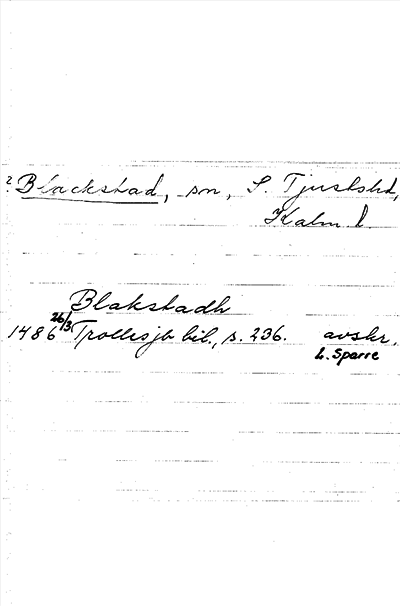 ? Blackstad, sn, S. Tjustshd,
Kalm. l.
Blakstadh
1486 26/3 Trollesjb bil., s. 236. avskr.
L. Sparre